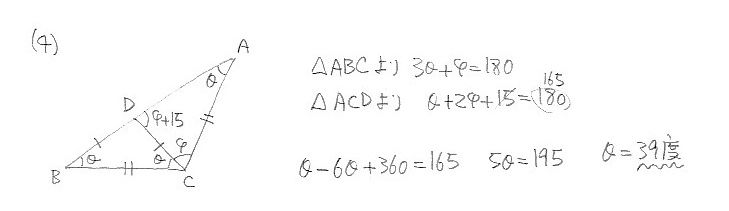 (4)
A
θ
D
φ+15
φ
θ
θ
B
C
△ABCより 3θ+φ=180
165
△ACDより θ+2φ+15=180
θ-6θ+360=165 5θ=195 θ=39度